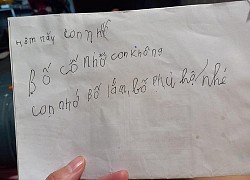 Hôm nay con nhớ
Bố có nhớ con không
con nhớ Bố lắm, bố phù hộ nhé